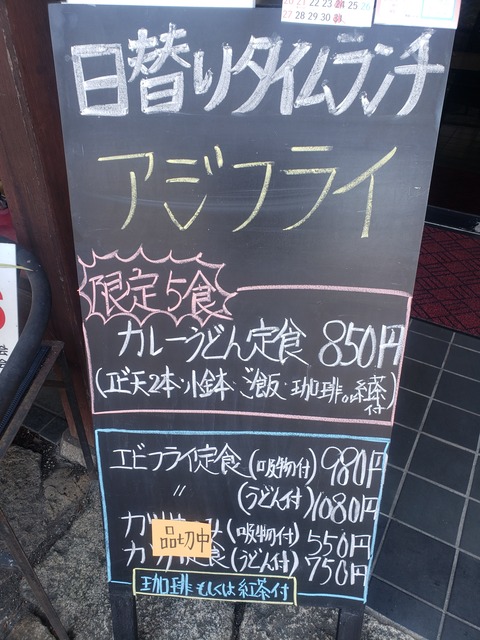 20 21 22 23 24 25 26
27 28 29 30 31
日替りタイムランチ
アジフライ
限定5食
カレーうどん定食 850円
(エビ天2本・小鉢・ご飯・珈琲or紅茶付)
エビフライ定食(吸物付)980円
〃 (うどん付)1080円
(吸物付)550円
品切中
定食(うどん付)750円
珈琲もしくは紅茶付